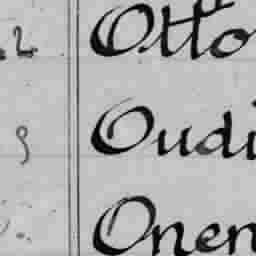 2 Otto
9 Oudi
Onen